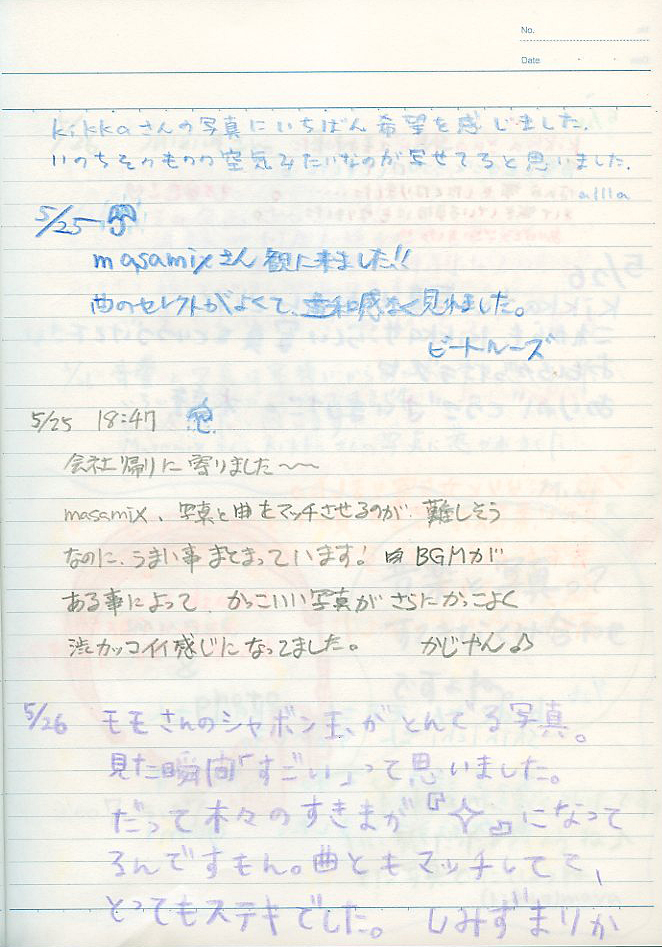 No.
Date
kikkaさんの写真にいちばん希望を感じました。
いのちそのものの空気みたいなのが写せてると思いました。
allla
5/25
masamixさん観に来ました!!
曲のセレクトがよくて、違和感なく見れました。
ビートルーズ
5/25 18:47
会社帰りに寄りました〜〜
masamix、写真と曲をマッチさせるのが難しそう
なのに、うまい事まとまっています! BGMが
ある事によって、かっこいい写真がさらにかっこよく
渋カッコイイ感じになってました。 かじやん♪
5/26 モモさんのシャボン玉がとんでる写真。
見た瞬間「すごい」って思いました。
だって木々のすきまが『✧』になって
るんですもん。曲ともマッチしてて、
とってもステキでした。 しみずまりか